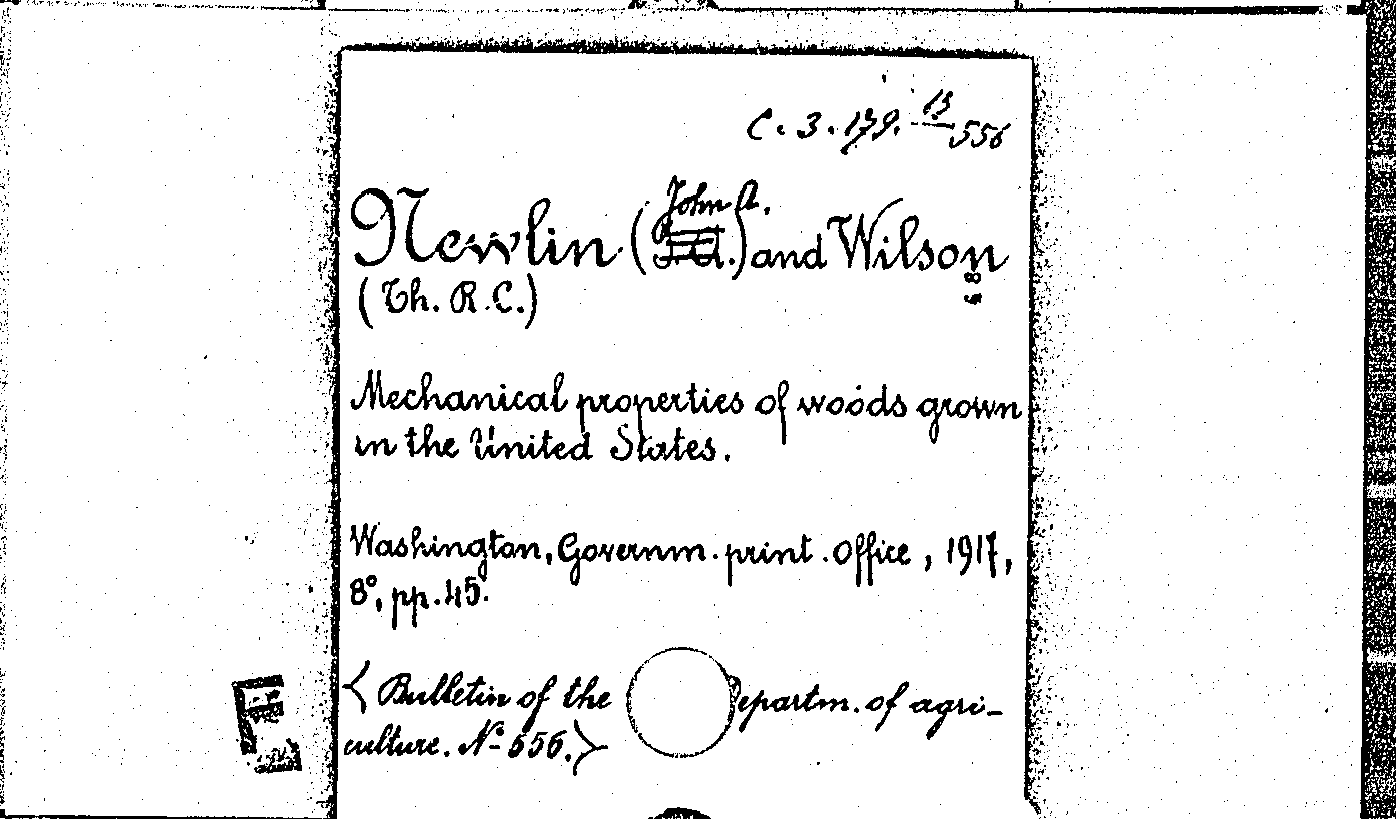 C. 3. 179. 13/556
Newlin (John A.) and Wilson
(Th. R. C.)
Mechanical properties of woods grown
in the United States.
Washington, Governm. print. Office, 1917,
8°, pp. 45.
< Bulletin of the Departm. of agri-
culture. Nº 556. >